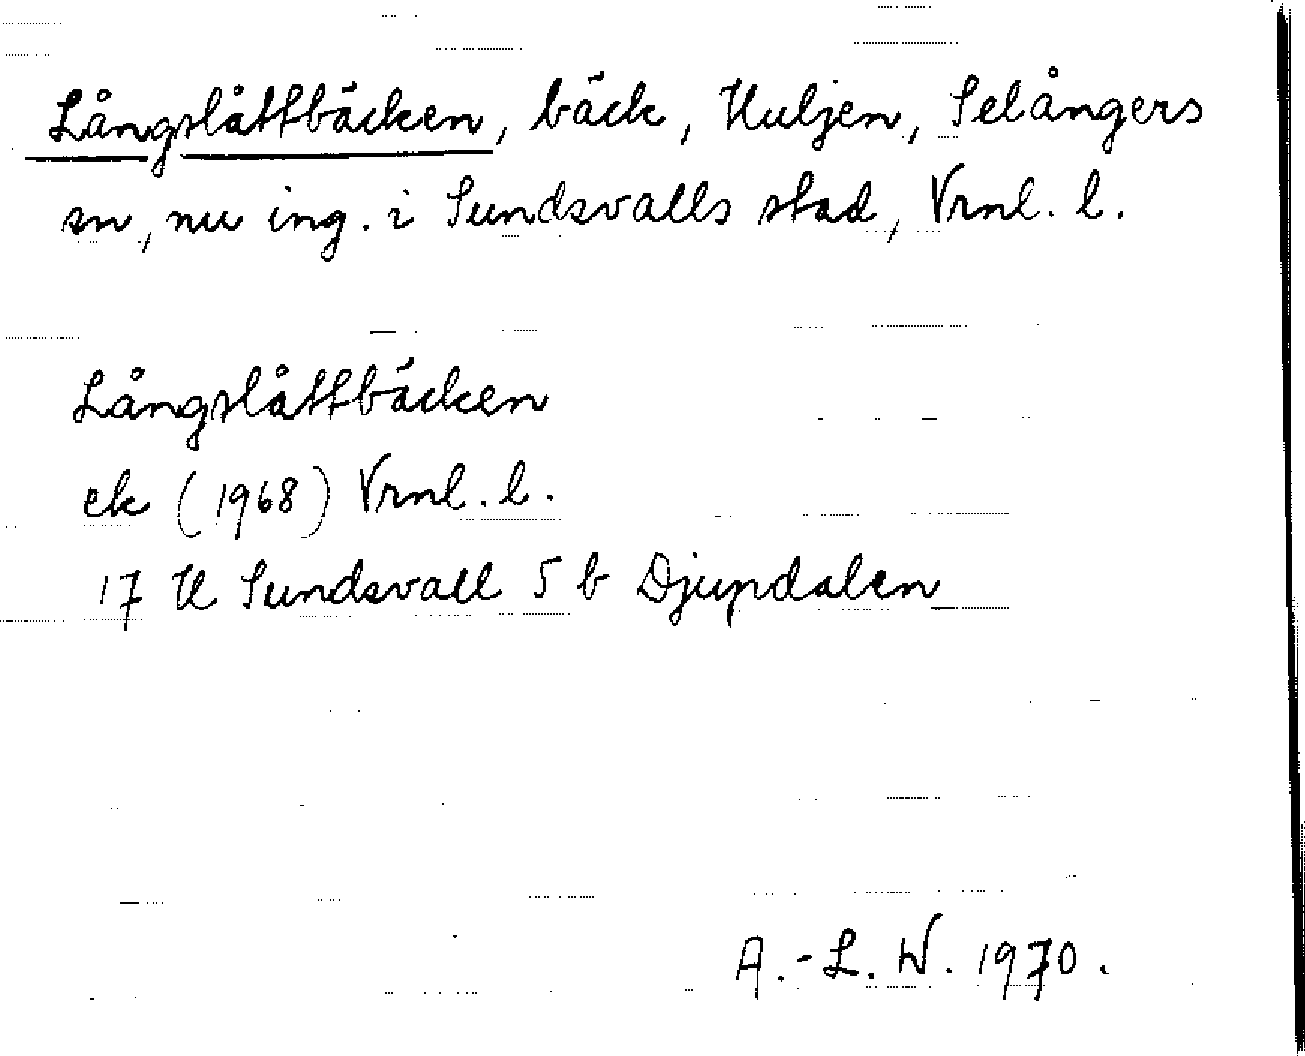 Långslåttbäcken, bäck, Huljen, Selångers
sn, nu ing. i Sundsvalls stad, Vrnl. l.
Långslåttbäcken
ek (1968) Vrnl. l.
17 H Sundsvall 5 b Djupdalen
A.-L. W. 1970.